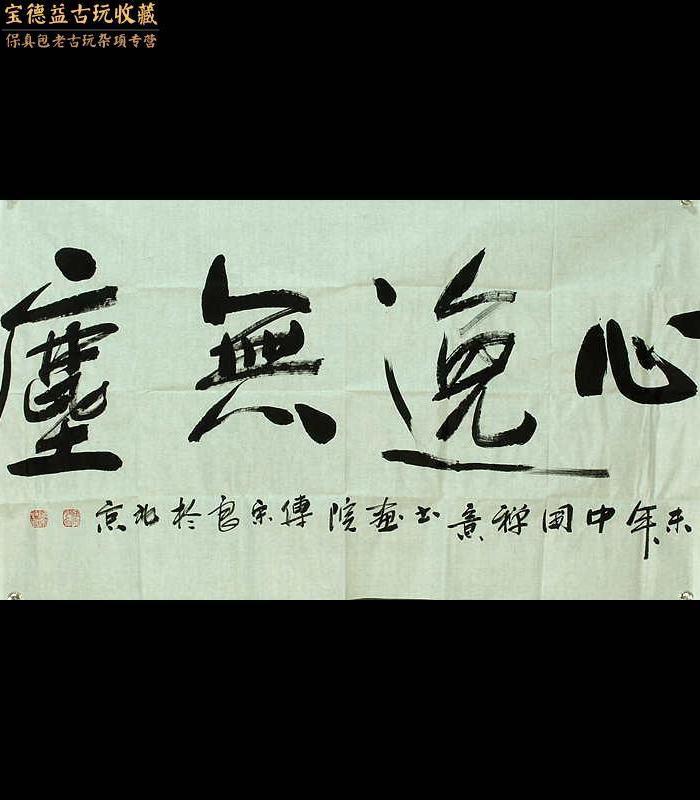 宝德益古玩收藏
保真包老古玩杂项专营
心逸無塵
未年中国禅意书画院傅宗良於北京